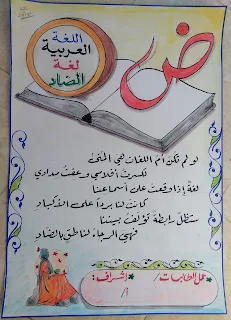 اللغة
العربية
لغة
الضاد
ض
لو لم تكن أم اللغات هي المنى
لكسرت أقلامي وعفت مدادي
لغة إذا وقعت على أسماعنا
كانت لنا بردا على الأكباد
ستظل رابطة تؤلف بيننا
فهي الرجاء لناطق بالضاد
عمل الطالبات /
إشراف :
أ /